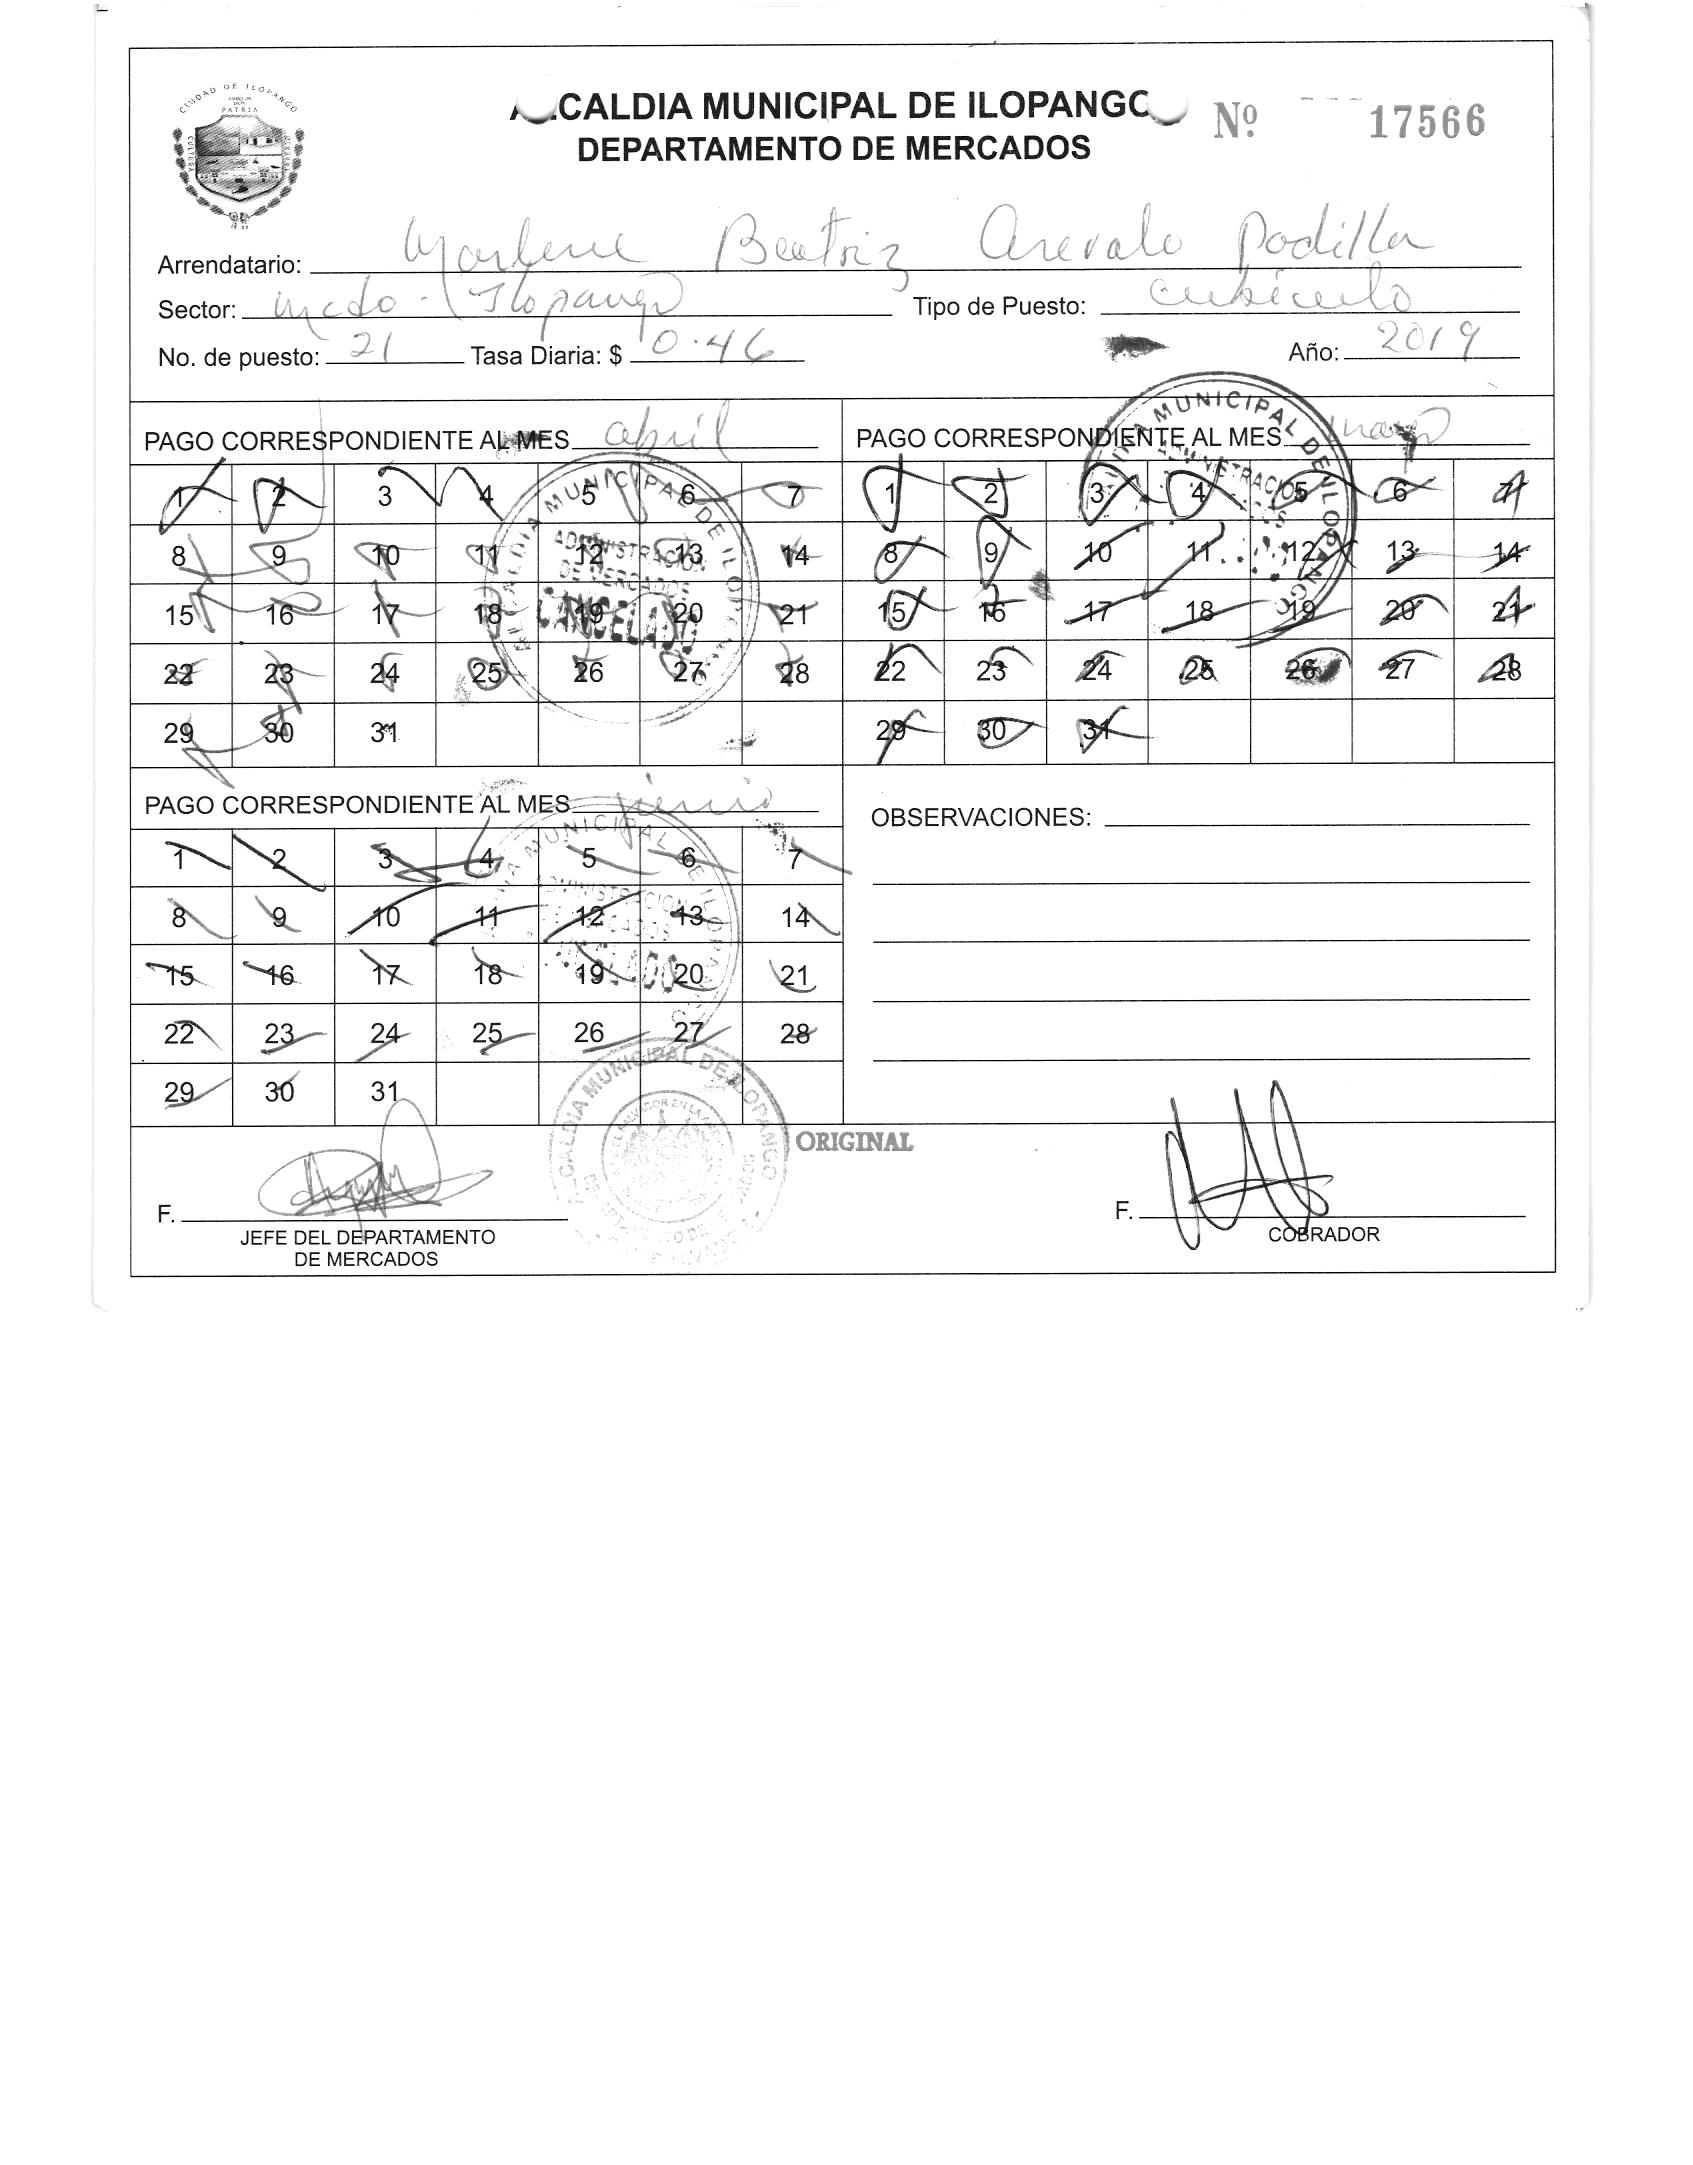 CIUDAD DE ILOPANGO
PATRIA
CULTURA
ALCALDIA MUNICIPAL DE ILOPANGO
DEPARTAMENTO DE MERCADOS
Nº 17566
Arrendatario: Marlene Beatriz Arevalo Padilla
Sector: Mcdo. Ilopango Tipo de Puesto: cubiculo
No. de puesto: 21 Tasa Diaria: $ 0.46 Año: 2019
PAGO CORRESPONDIENTE AL MES abril
1 2 3 4 5 6 7
8 9 10 11 12 13 14
15 16 17 18 19 20 21
22 23 24 25 26 27 28
29 30 31
ALCALDIA MUNICIPAL DE ILOPANGO
ADMINISTRACION
DE MERCADOS
CANCELADO
PAGO CORRESPONDIENTE AL MES mayo
1 2 3 4 5 6 7
8 9 10 11 12 13 14
15 16 17 18 19 20 21
22 23 24 25 26 27 28
29 30 31
MUNICIPAL DE ILOPANGO
ADMINISTRACION
PAGO CORRESPONDIENTE AL MES junio
1 2 3 4 5 6 7
8 9 10 11 12 13 14
15 16 17 18 19 20 21
22 23 24 25 26 27 28
29 30 31
MUNICIPAL DE ILOPANGO
ADMINISTRACION
DE MERCADOS
CANCELADO
OBSERVACIONES:
ALCALDIA MUNICIPAL DE ILOPANGO
ORIGINAL
F.
JEFE DEL DEPARTAMENTO
DE MERCADOS
F.
COBRADOR